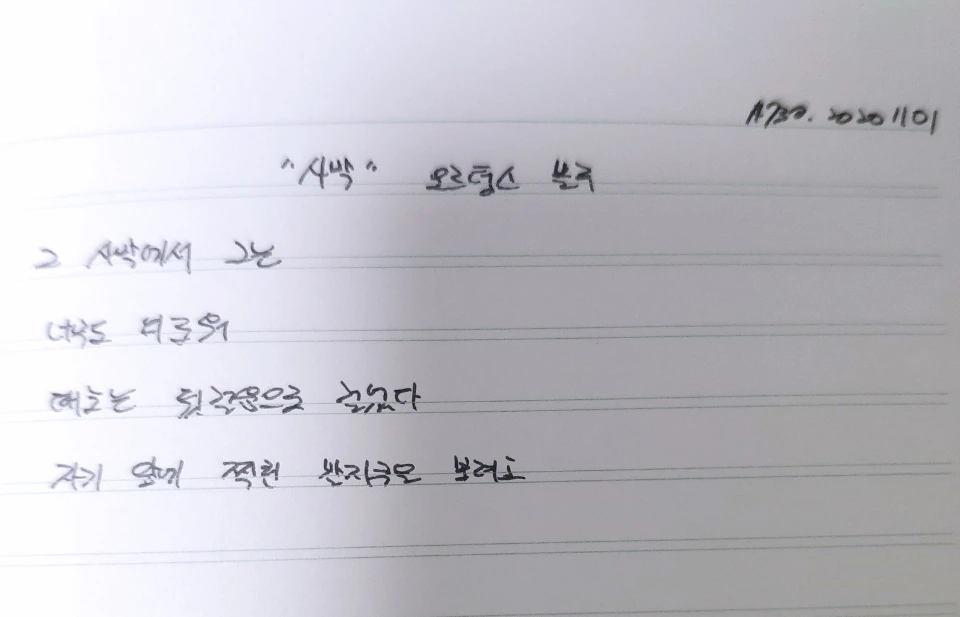 A730. 20201101
"사막" 오르텅스 블루
그 사막에서 그는
너무도 외로워
때로는 뒷걸음으로 걸었다
자기 앞에 찍힌 발자국을 보려고